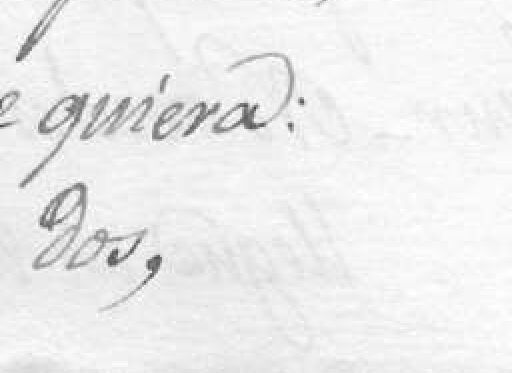 e quiera:
dos,